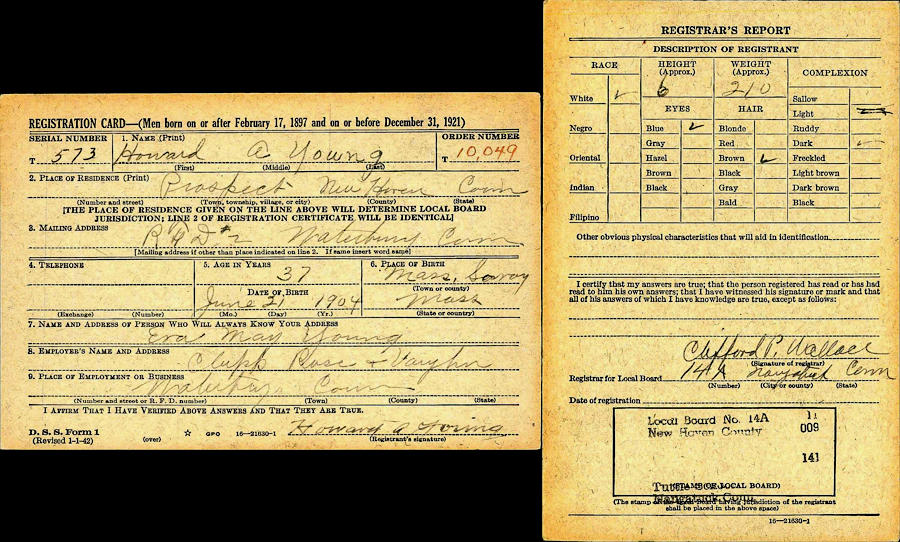 REGISTRATION CARD—(Men born on or after February 17, 1897 and on or before December 31, 1921)
SERIAL NUMBER 1. NAME (Print) ORDER NUMBER
T 573 Howard A Young T 10,049
(First) (Middle) (Last)
2. PLACE OF RESIDENCE (Print)
Prospect New Haven Conn
(Number and street) (Town, township, village, or city) (County) (State)
[THE PLACE OF RESIDENCE GIVEN ON THE LINE ABOVE WILL DETERMINE LOCAL BOARD
JURISDICTION; LINE 2 OF REGISTRATION CERTIFICATE WILL BE IDENTICAL]
3. MAILING ADDRESS
R F D #2 Waterbury Conn
[Mailing address if other than place indicated on line 2. If same insert word same]
4. TELEPHONE 5. AGE IN YEARS 6. PLACE OF BIRTH
37 Mass, Savoy
DATE OF BIRTH (Town or county)
June 21 1904 Mass
(Exchange) (Number) (Mo.) (Day) (Yr.) (State or country)
7. NAME AND ADDRESS OF PERSON WHO WILL ALWAYS KNOW YOUR ADDRESS
Eva May Young
8. EMPLOYER'S NAME AND ADDRESS
Clapp Rose + Vaughn
9. PLACE OF EMPLOYMENT OR BUSINESS
Waterbury Conn
(Number and street or R. F. D. number) (Town) (County) (State)
I AFFIRM THAT I HAVE VERIFIED ABOVE ANSWERS AND THAT THEY ARE TRUE.
D. S. S. Form 1
(Revised 1-1-42) (over) ☆ GPO 16—21630-1 Howard A Young
(Registrant's signature)
REGISTRAR'S REPORT
DESCRIPTION OF REGISTRANT
RACE HEIGHT (Approx.) WEIGHT (Approx.) COMPLEXION
6 210
White ✓ Sallow
EYES HAIR Light
Negro Blue ✓ Blonde Ruddy
Gray Red Dark ✓
Oriental Hazel Brown ✓ Freckled
Brown Black Light brown
Indian Black Gray Dark brown
Bald Black
Filipino
Other obvious physical characteristics that will aid in identification
I certify that my answers are true; that the person registered has read or has had
read to him his own answers; that I have witnessed his signature or mark and that
all of his answers of which I have knowledge are true, except as follows:
Clifford P. Wallace
(Signature of registrar)
Registrar for Local Board 14A Naugatuck Conn
(Number) (City or county) (State)
Date of registration
Local Board No. 14A 11
New Haven County 009
141
Tuttle
(STAMP OF LOCAL BOARD)
Naugatuck Conn.
(The stamp of the Local Board having jurisdiction of the registrant
shall be placed in the above space)
16—21630-1